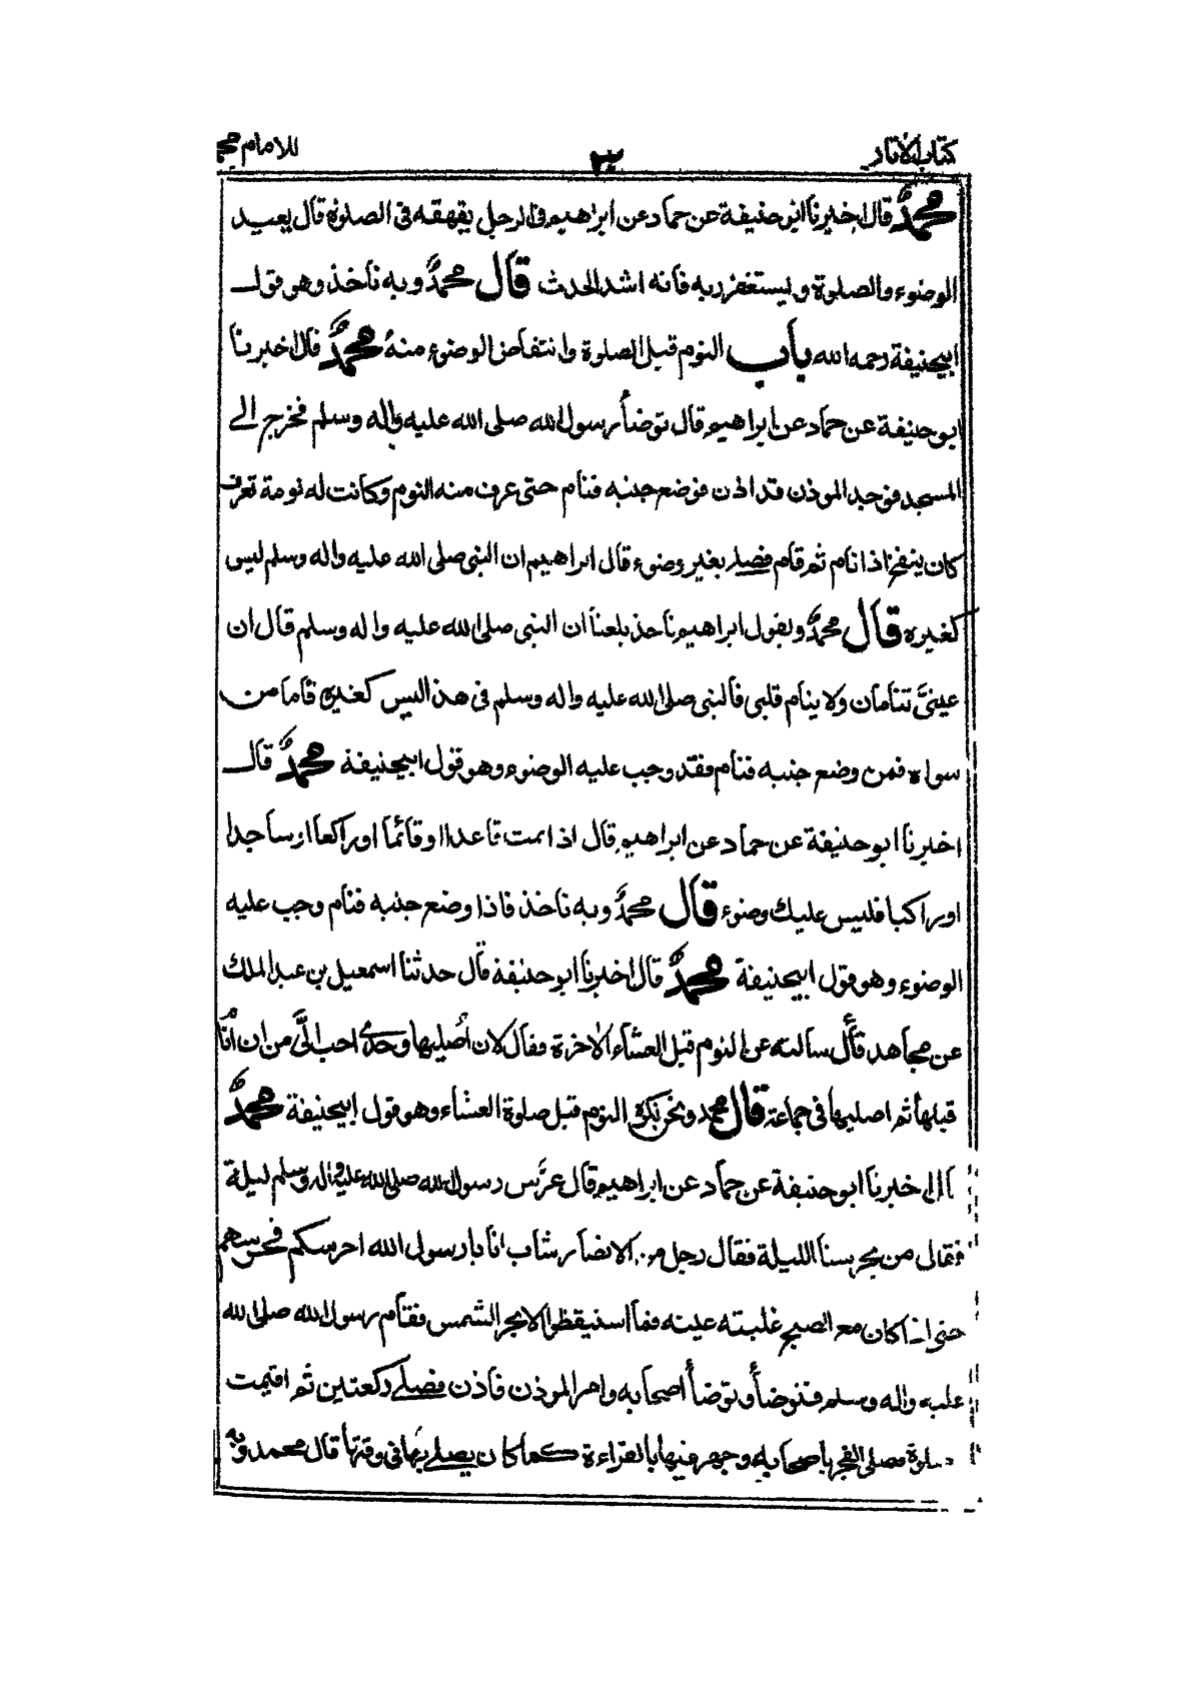 كتاب الأثار
٣٠
للامام محمد
محمدؒ قال اخبرنا ابو حنيفة عن حماد عن ابراهيم في الرجل يقهقه في الصلوة قال يعيد
الوضوء والصلوة وليستغفر ربه فانه اشد الحدث قال محمدؒ وبه ناخذ وهو قول
ابيحنيفة رحمه الله باب النوم قبل الصلوة وانتقاض الوضوء منه محمدؒ قال اخبرنا
ابو حنيفة عن حماد عن ابراهيم قال توضأ رسول الله صلى الله عليه واله وسلم فخرج الى
المسجد فوجد الموذن قد اذن فوضع جنبه فنام حتى عرف منه النوم وكانت له نومة تعرف
كان ينفخ اذا نام ثم قام فصلى بغير وضوء قال ابراهيم ان النبي صلى الله عليه واله وسلم ليس
كغيره قال محمدؒ وبقول ابراهيم ناخذ بلغنا ان النبي صلى الله عليه واله وسلم قال ان
عينيَّ تنامان ولا ينام قلبي فالنبي صلى الله عليه واله وسلم في هذا ليس كغيره فاما من
سواه فمن وضع جنبه فنام فقد وجب عليه الوضوء وهو قول ابيحنيفة محمدؒ قال
اخبرنا ابو حنيفة عن حماد عن ابراهيم قال اذا نمت قاعدا او قائما او راكعا او ساجدا
او راكبا فليس عليك وضوء قال محمدؒ وبه ناخذ فاذا وضع جنبه فنام وجب عليه
الوضوء وهو قول ابيحنيفة محمدؒ قال اخبرنا ابو حنيفة قال حدثنا اسمعيل بن عبد الملك
عن مجاهد قال سالته عن النوم قبل العشاء الاخرة فقال لان اصليها وحدى احب الىَّ من ان انام
قبلها ثم اصليها في جماعة قال محمد ونحن نكره النوم قبل صلوة العشاء وهو قول ابيحنيفة محمدؒ
قال اخبرنا ابو حنيفة عن حماد عن ابراهيم قال عرَّس رسول الله صلى الله عليه واله وسلم ليلة
فقال من يحرسنا الليلة فقال رجل من الانصار شاب انا يا رسول الله احرسكم فحرسهم
حتى اذا كان مع الصبح غلبته عينه فما استيقظوا الا بحر الشمس فقام رسول الله صلى الله
عليه واله وسلم فتوضأ وتوضأ اصحابه وامر الموذن فاذن فصلى ركعتين ثم اقيمت
صلوة فصلى الفجر باصحابه وجهر فيها بالقراءة كما كان يصلي بها في وقتها قال محمد وبه